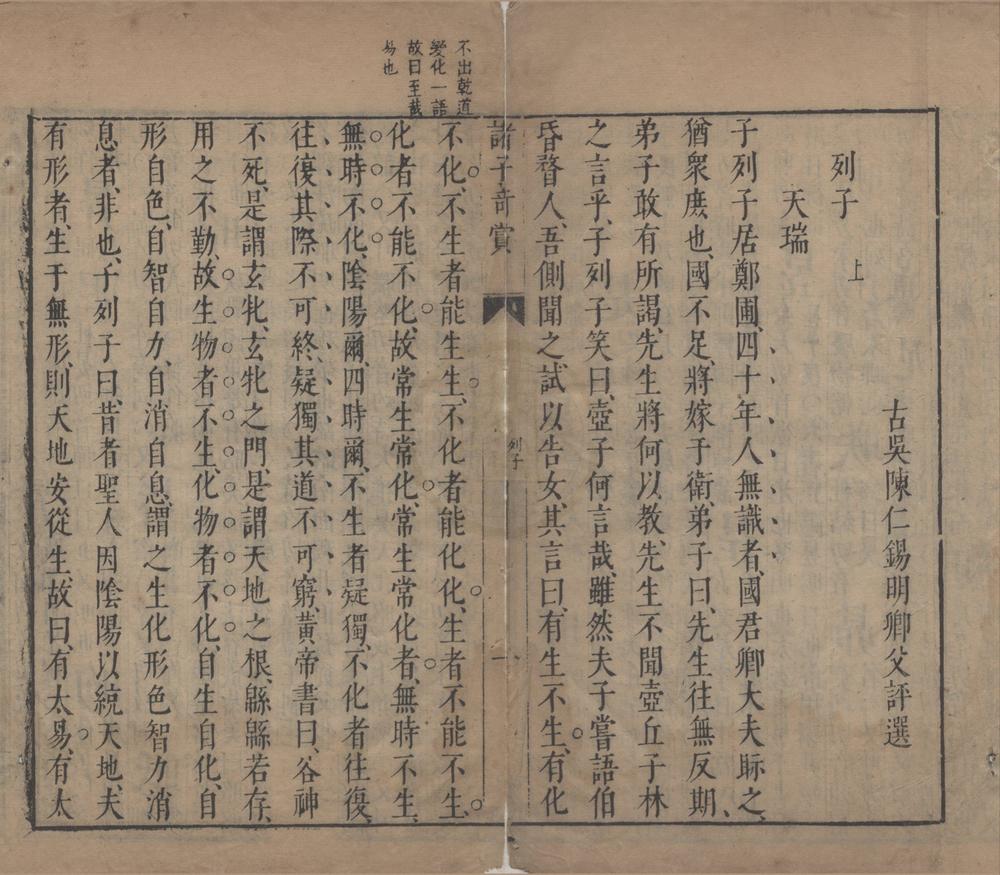 列子 上
古吳陳仁錫明卿父評選
天瑞
子列子居鄭圃、四十年人無識者、國君卿大夫眎之、
猶衆庶也、國不足、將嫁于衛、弟子曰、先生往無反期、
弟子敢有所謁、先生將何以教、先生不聞壺丘子林
之言乎、子列子笑曰、壺子何言哉、雖然夫子嘗語伯
昏瞀人、吾側聞之、試以告女、其言曰、有生不生、有化
諸子奇賞
列子
一
不出乾道
變化一語
故曰至哉
易也
不化、不生者能生生、不化者能化化、生者不能不生、
化者不能不化、故常生常化、常生常化者、無時不生、
無時不化、陰陽爾、四時爾、不生者疑獨、不化者往復、
往復其際不可終、疑獨其道不可窮、黃帝書曰、谷神
不死、是謂玄牝、玄牝之門、是謂天地之根、緜緜若存、
用之不勤、故生物者不生、化物者不化、自生自化、自
形自色、自智自力、自消自息、謂之生化形色智力消
息者、非也、子列子曰、昔者聖人因陰陽以統天地、夫
有形者、生于無形、則天地安從生、故曰、有太易、有太